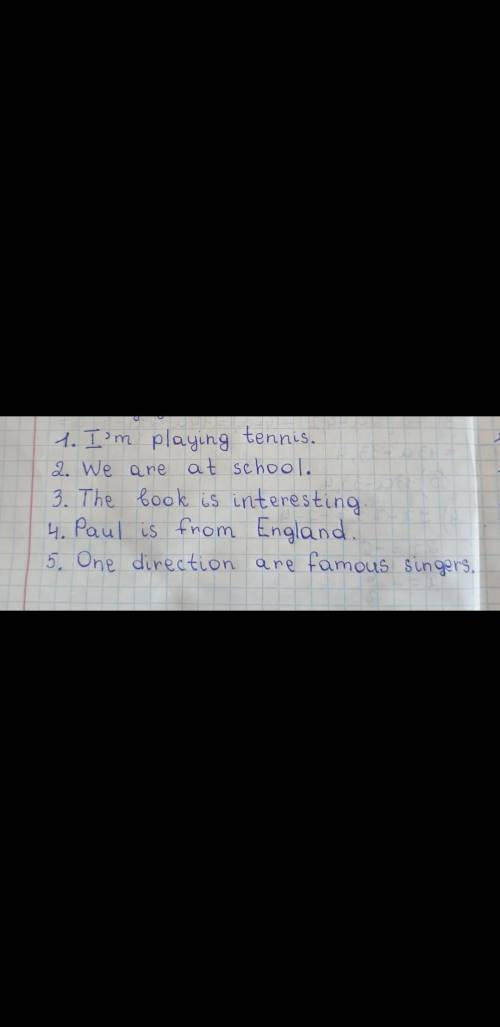 1. I'm playing tennis.
2. We are at school.
3. The book is interesting.
4. Paul is from England.
5. One direction are famous singers.